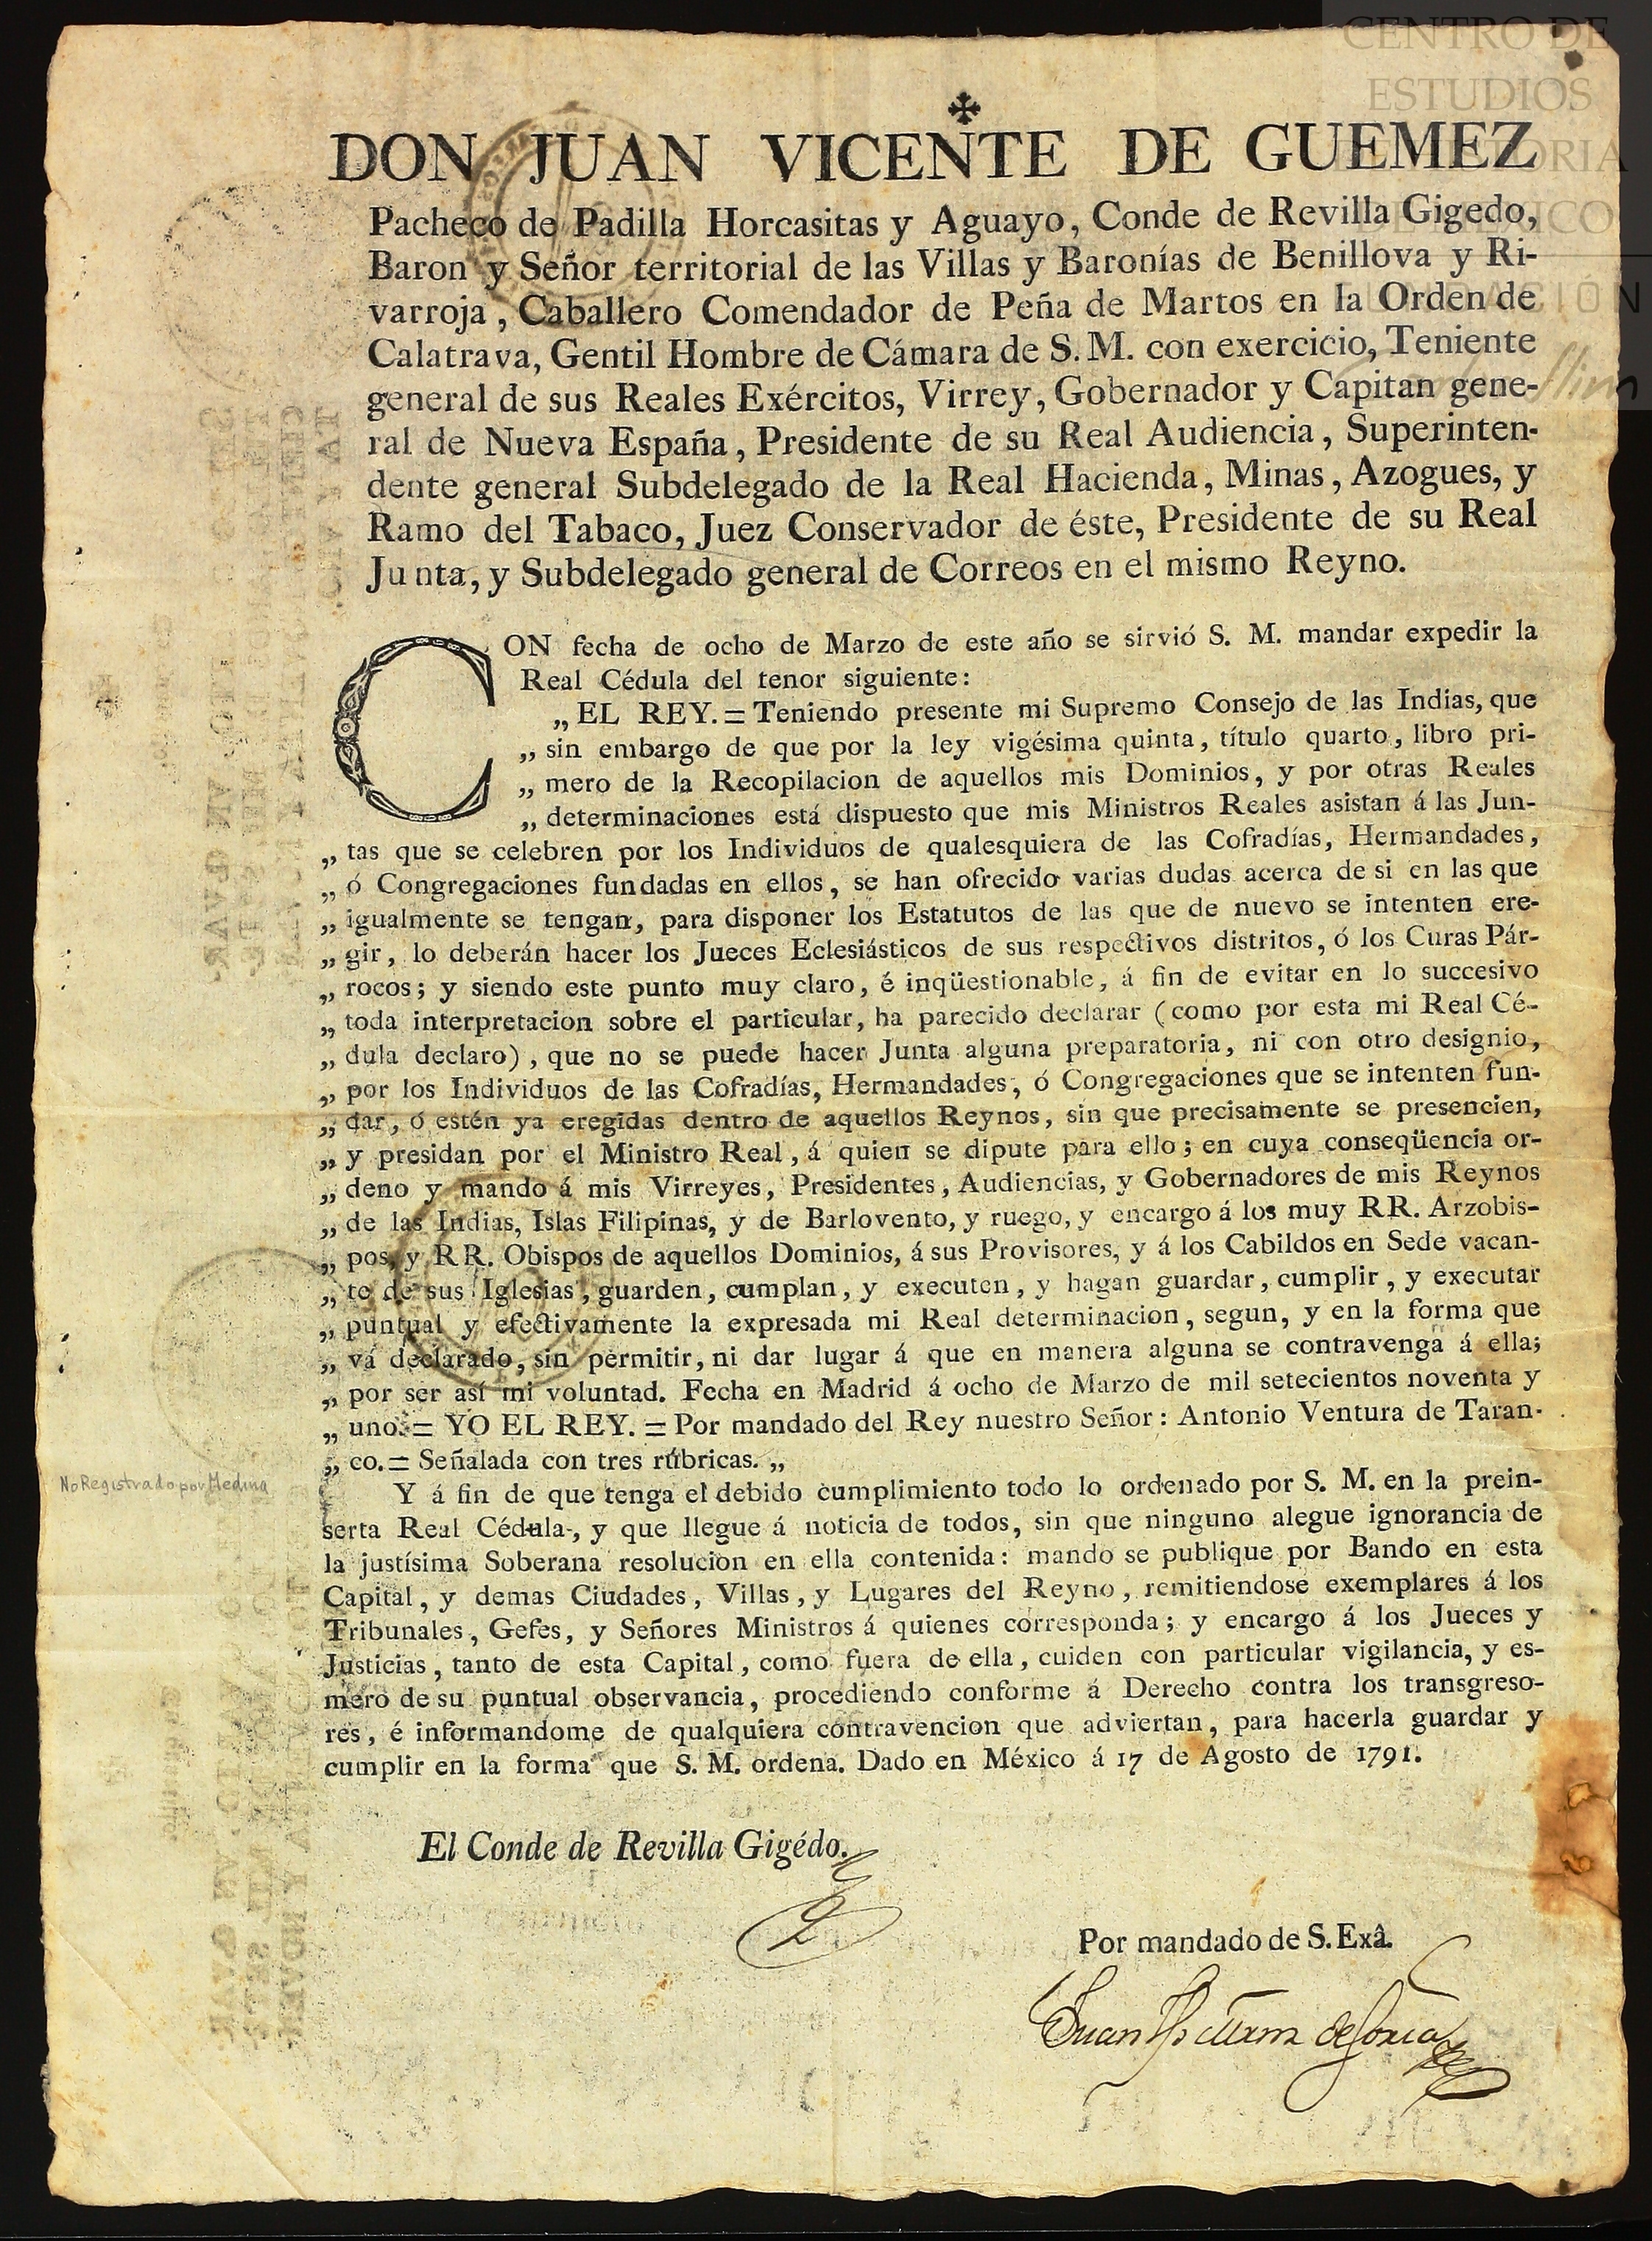 CENTRO DE
ESTUDIOS
DON JUAN VICENTE DE GUEMEZ
Pacheco de Padilla Horcasitas y Aguayo, Conde de Revilla Gigedo,
Baron y Señor territorial de las Villas y Baronías de Benillova y Ri-
varroja, Caballero Comendador de Peña de Martos en la Orden de
Calatrava, Gentil Hombre de Cámara de S. M. con exercicio, Teniente
general de sus Reales Exércitos, Virrey, Gobernador y Capitan gene-
ral de Nueva España, Presidente de su Real Audiencia, Superinten-
dente general Subdelegado de la Real Hacienda, Minas, Azogues, y
Ramo del Tabaco, Juez Conservador de éste, Presidente de su Real
Junta, y Subdelegado general de Correos en el mismo Reyno.
CON fecha de ocho de Marzo de este año se sirvió S. M. mandar expedir la
Real Cédula del tenor siguiente:
„ EL REY. = Teniendo presente mi Supremo Consejo de las Indias, que
„ sin embargo de que por la ley vigésima quinta, título quarto, libro pri-
„ mero de la Recopilacion de aquellos mis Dominios, y por otras Reales
„ determinaciones está dispuesto que mis Ministros Reales asistan á las Jun-
„ tas que se celebren por los Individuos de qualesquiera de las Cofradías, Hermandades,
„ ó Congregaciones fundadas en ellos, se han ofrecido varias dudas acerca de si en las que
„ igualmente se tengan, para disponer los Estatutos de las que de nuevo se intenten ere-
„ gir, lo deberán hacer los Jueces Eclesiásticos de sus respectivos distritos, ó los Curas Pár-
„ rocos; y siendo este punto muy claro, é inqüestionable, á fin de evitar en lo succesivo
„ toda interpretacion sobre el particular, ha parecido declarar (como por esta mi Real Cé-
„ dula declaro), que no se puede hacer Junta alguna preparatoria, ni con otro designio,
„ por los Individuos de las Cofradías, Hermandades, ó Congregaciones que se intenten fun-
„ dar, ó estén ya eregidas dentro de aquellos Reynos, sin que precisamente se presencien,
„ y presidan por el Ministro Real, á quien se dipute para ello; en cuya conseqüencia or-
„ deno y mando á mis Virreyes, Presidentes, Audiencias, y Gobernadores de mis Reynos
„ de las Indias, Islas Filipinas, y de Barlovento, y ruego, y encargo á los muy RR. Arzobis-
„ pos, y RR. Obispos de aquellos Dominios, á sus Provisores, y á los Cabildos en Sede vacan-
„ te de sus Iglesias, guarden, cumplan, y executen, y hagan guardar, cumplir, y executar
„ puntual y efectivamente la expresada mi Real determinacion, segun, y en la forma que
„ vá declarado, sin permitir, ni dar lugar á que en manera alguna se contravenga á ella;
„ por ser así mi voluntad. Fecha en Madrid á ocho de Marzo de mil setecientos noventa y
„ uno. = YO EL REY. = Por mandado del Rey nuestro Señor: Antonio Ventura de Taran-
„ co. = Señalada con tres rúbricas. „
No Registrado por Medina
Y á fin de que tenga el debido cumplimiento todo lo ordenado por S. M. en la prein-
serta Real Cédula, y que llegue á noticia de todos, sin que ninguno alegue ignorancia de
la justísima Soberana resolucion en ella contenida: mando se publique por Bando en esta
Capital, y demas Ciudades, Villas, y Lugares del Reyno, remitiendose exemplares á los
Tribunales, Gefes, y Señores Ministros á quienes corresponda; y encargo á los Jueces y
Justicias, tanto de esta Capital, como fuera de ella, cuiden con particular vigilancia, y es-
mero de su puntual observancia, procediendo conforme á Derecho contra los transgreso-
res, é informandome de qualquiera contravencion que adviertan, para hacerla guardar y
cumplir en la forma que S. M. ordena. Dado en México á 17 de Agosto de 1791.
El Conde de Revilla Gigédo.
Por mandado de S. Exâ.